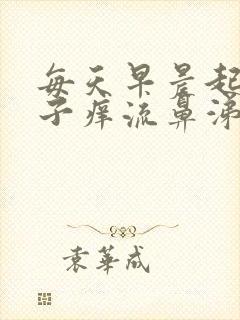 每天早晨起
子痒流鼻涕
袁華成